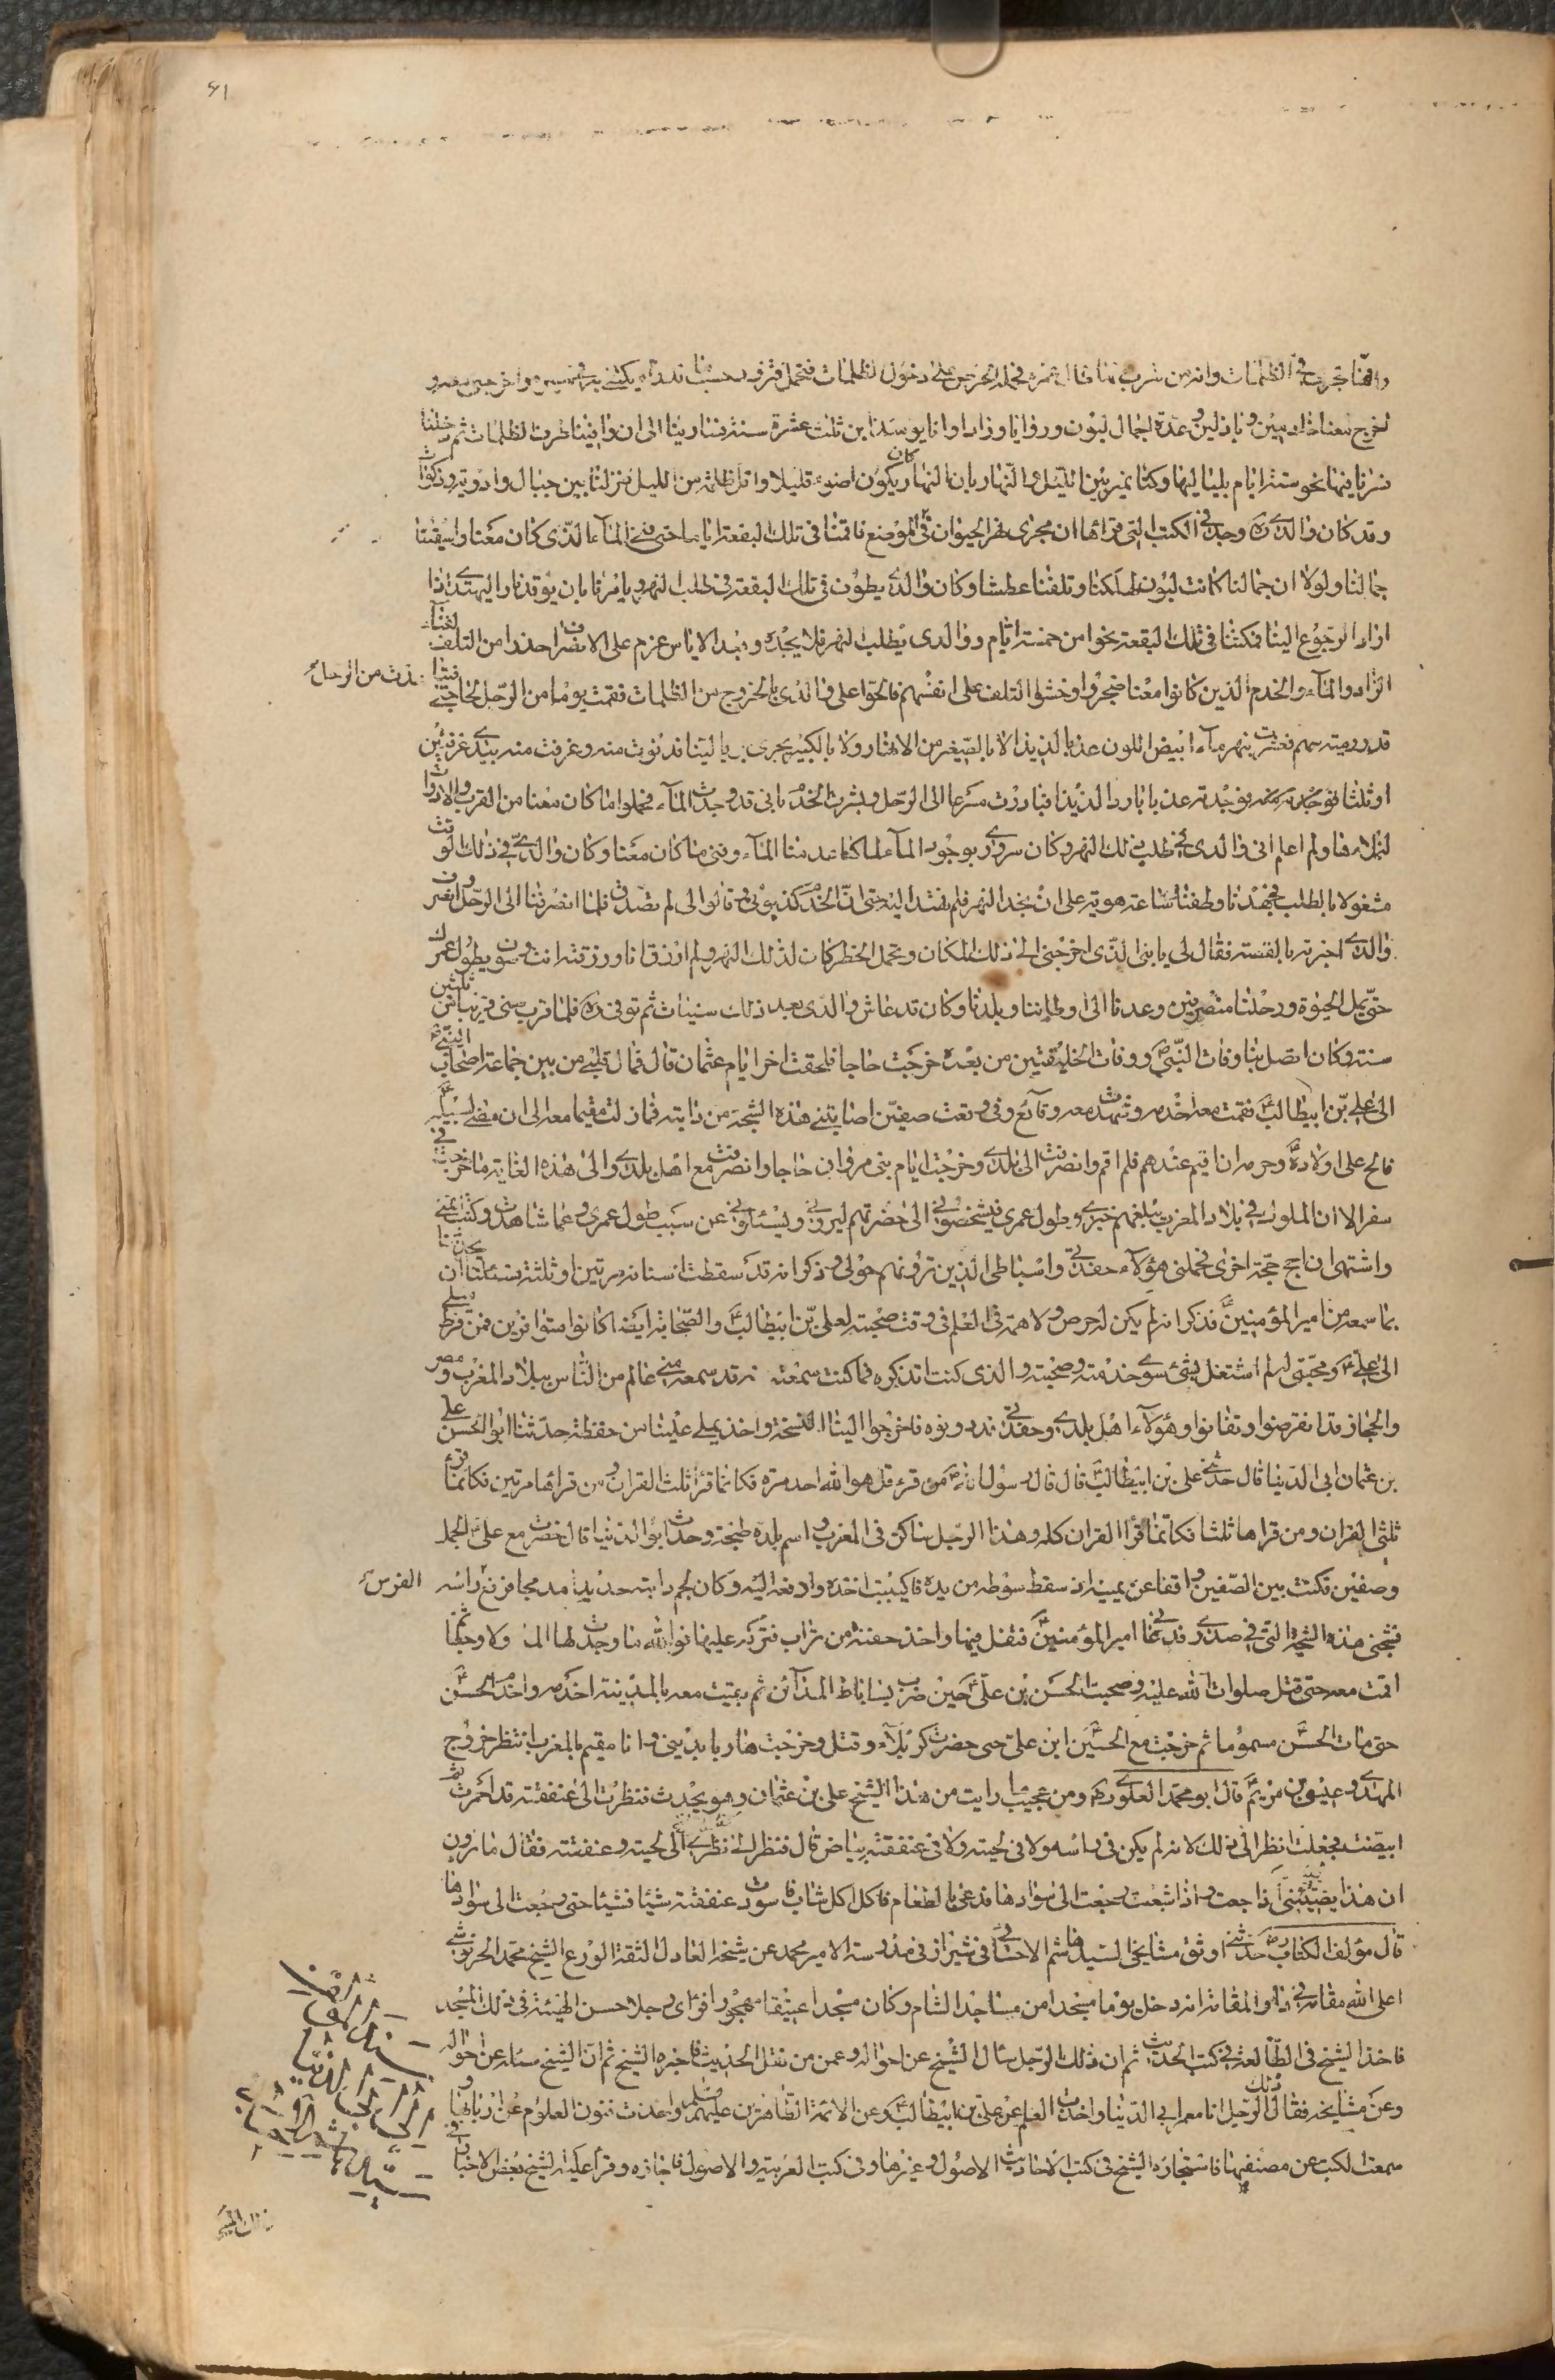 ٤١
وانها تجري في الظلمات وانه من شرب منها طال عمره فحمله الحرص على دخول الظلمات فتحمل وتزود حسب ما قدر انه يكتفي به في مسيره واخرجني معه و
اخرج معنا خادمين وباذلين وعدة اجمال لبون وروايا وزادا وانا يومئذ ابن ثلث عشرة سنة فسار بنا الى ان وافينا طرف الظلمات ثم دخلنا
فسرنا فيها نحو ستة ايام بلياليها وكنا نميز بين الليل والنهار بان النهار كان يكون اضوء قليلا واقل ظلمة من الليل فنزلنا بين جبال واودية وذكوات
وقد كان والدي ره وجد في الكتب التي قراها ان مجرى نهر الحيوان في الموضع فاقمنا في تلك البقعة اياما حتى فنى الماء الذي كان معنا واسقينا
جمالنا ولولا ان جمالنا كانت لبون لهلكنا وتلفنا عطشا وكان والدي يطوف في تلك البقعة في طلب النهر ويامرنا بان نوقد نارا ليهتدي اذا
اراد الرجوع الينا فمكثنا في تلك البقعة نحوا من خمسة ايام ووالدي يطلب النهر فلا يجده وبعد الاياس عزم على الانصراف حذرا من التلف لفناء
الزاد والماء والخدم الذين كانوا معنا ضجروا وخشوا التلف على انفسهم فالحوا على والدي بالخروج من الظلمات فقمت يوما من الرحل لحاجتي
فتباعدت من الرحل
قدر رمية سهم فعثرت بنهر ماء ابيض اللون عذب لذيذ لا بالصغير من الانهار ولا بالكبير يجري جريا لينا فدنوت منه وغرفت منه بيدي غرفتين
او ثلثا فوجدته عذبا باردا لذيذا فبادرت مسرعا الى الرحل وبشرت الخدم باني قد وجدت الماء فحملوا ما كان معنا من القرب والادوات
لنملاها ولم اعلم ان والدي في طلب ذلك النهر وكان سروري بوجود الماء لما كنا عدمنا الماء وفنى ما كان معنا وكان والدي في ذلك الوقت
مشغولا بالطلب فجهدنا وطفنا ساعة هوية على ان نجد النهر فلم نهتد اليه حتى ان الخدم كذبوني وقالوا لي لم تصدق فلما انصرفنا الى الرحل وانصرف
والدي اخبرته بالقصة فقال لي يا بني الذي اخرجني الى ذلك المكان وتحمل الخطر كان لذلك النهر ولم ارزق انا ورزقته انت وسوف يطول عمرك
حتى تمل الحيوة ورحلنا منصرفين وعدنا الى اوطاننا وبلدنا وكان قد عاش والدي بعد ذلك سنيات ثم توفى ره فلما قرب سنى قريبا من ثلثين
سنة وكان اتصل بنا وفات النبي ص ووفات الخليفتين من بعده خرجت حاجا فلحقت اخر ايام عثمان قال فمال قلبي من بين جماعة اصحاب النبي
الى علي بن ابيطالب ع فقمت معه اخدمه وشهدت معه وقائع وفي وقعت صفين اصابتني هذه الشجة من دابته فما زلت مقيما معه الى ان مضى لسبيله
فالح علي اولاده وحرمه ان اقيم عندهم فلم اقم وانصرفت الى بلدي وخرجت ايام بني مروان حاجا وانصرفت مع اهل بلدي والى هذه الغاية ما خرجت في
سفر الا ان الملوك في بلاد المغرب يبلغهم خبري وطول عمري فيشخصوني الى حضرتهم ليروني ويسئلوني عن سبب طول عمري وعما شاهدت وكنت اتمنى
واشتهى ان احج حجة اخرى فحملني هؤلاء حفدتي واسباطي الذين ترونهم حولي وذكر انه قد سقطت اسنانه مرتين او ثلثة فسئلناه ان يحدثنا
بما سمعه من امير المؤمنين ع فذكر انه لم يكن له حرص ولا همة في العلم في وقت صحبته لعلي بن ابيطالب ع والصحابة ايضا كانوا متوافرين فمن فرط ميلي
الى علي ع ومحبتي له لم اشتغل بشئ سوى خدمته وصحبته والذي كنت اتذكره مما كنت سمعته منه قد سمعه مني عالم من الناس ببلاد المغرب ومصر
والحجاز وقد انقرضوا وتفانوا وهؤلاء اهل بلدي وحفدتي قد دونوه فاخرجوا الينا النسخة واخذ يملي علينا من حفظه حدثنا ابو الحسن علي
بن عثمان ابي الدنيا قال حدثني علي بن ابيطالب ع قال قال رسول الله ص من قرء قل هو الله احد مرة فكانما قرأ ثلث القران ومن قراها مرتين فكانما قرء
ثلثي القران ومن قراها ثلثا فكانما قرأ القران كله وهذا الرجل ساكن في المغرب واسم بلده طنجة وحدث ابو الدنيا قال حضرت مع علي ع الجمل
وصفين فكنت بين الصفين واقفا عن يمينه اذ سقط سوطه من يده فاكببت اخذه وادفعه اليه وكان لجم دابته حديدا مدمجا فرفع راسه
الفرس
فشجني هذه الشجة التي في صدغي فدعاني امير المؤمنين ع فتفل فيها واخذ حفنة من تراب فتركه عليها فوالله ما وجدت لها الما ولا وجعا ثم
اقمت معه حتى قتل صلوات الله عليه وصحبت الحسن بن علي ع حين ضرب بساباط المدائن ثم بقيت معه بالمدينة اخدمه واخدم الحسين ع
حتى مات الحسن مسموما ثم خرجت مع الحسين ابن علي حتى حضرت كربلاء وقتل وخرجت هاربا بديني وانا مقيم بالمغرب انتظر خروج
المهدي وعيسى بن مريم ع قال ابو محمد العلوي ره ومن عجيب ما رايت من هذا الشيخ علي بن عثمان وهو يحدث فنظرت الى عنفقته قد احمرت ثم
ابيضت فجعلت انظر الى ذلك لانه لم يكن في راسه ولا في لحيته ولا في عنفقته بياض قال فنظر الى نظري الى لحيته وعنفقته فقال ما ترون
ان هذا يصيبني اذا جعت واذا شبعت رجعت الى سوادها فدعى بالطعام فاكل اكل شاب فاسودت عنفقته شيئا فشيئا حتى رجعت الى سوادها
قال مؤلف الكتاب ره حدثني اوثق مشايخي السيد هاشم الاحسائي في شيراز في مدرسة الامير محمد عن شيخه العادل الثقة الورع الشيخ محمد الحرفوشي
اعلى الله مقامه في دار المقامة انه دخل يوما مسجدا من مساجد الشام وكان مسجدا عتيقا مهجورا فراى رجلا حسن الهيئة في ذلك المسجد
فاخذ الشيخ في المطالعة في كتب الحديث ثم ان ذلك الرجل سأل الشيخ عن احواله وعمن من نقل الحديث فاخبره الشيخ ثم ان الشيخ سئله عن احواله
وعن مشايخه فقال ذلك الرجل انا معمر ابي الدنيا واخذت العلم عن علي بن ابيطالب ع وعن الائمة الطاهرين عليهم سلم واخذت فنون العلوم عن اربابها و
سمعت الكتب عن مصنفيها فاستجازه الشيخ في كتب الاحاديث الاصول وغيرها وفي كتب العربية والاصول فاجازه وقرأ عليه الشيخ بعض الاخبار في
ذلك المسجد